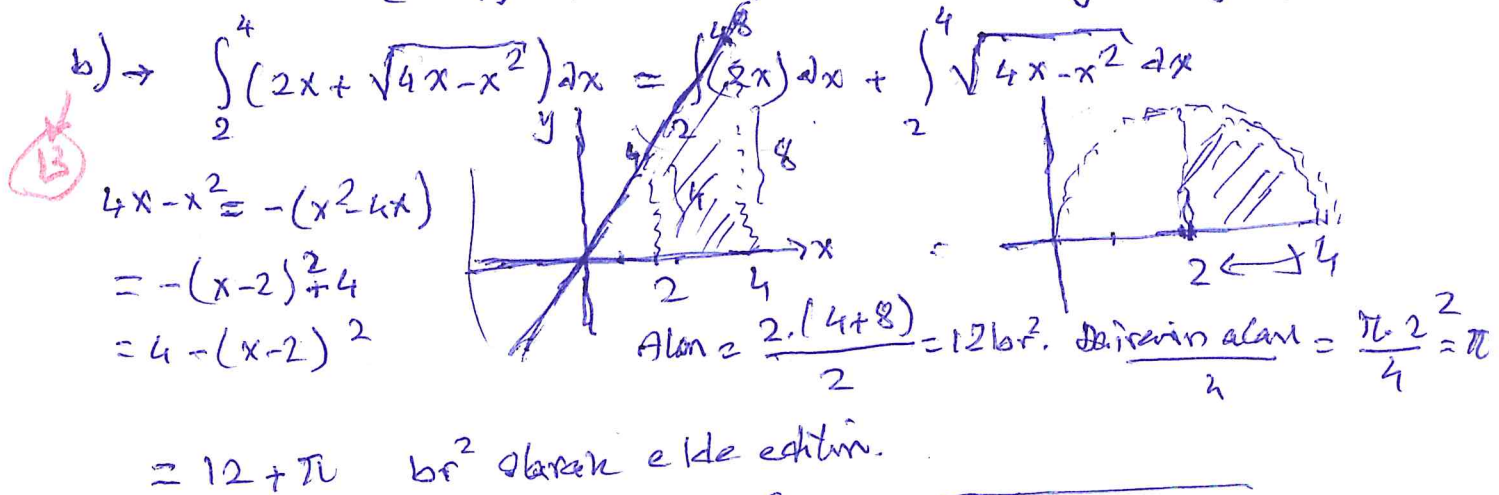 b) → ∫₂⁴ (2x + √(4x-x²)) dx = ∫₂⁴ (2x) dx + ∫₂⁴ √(4x-x²) dx
13
y 4 8 8
4x-x² = -(x²-4x)
= -(x-2)²+4
= 4-(x-2)²
2 4 x = 2 ↔ 4
Alan = 2.(4+8)/2 = 12 br². Dairenin alanı/4 = π.2²/4 = π
= 12 + π br² olarak elde edilir.